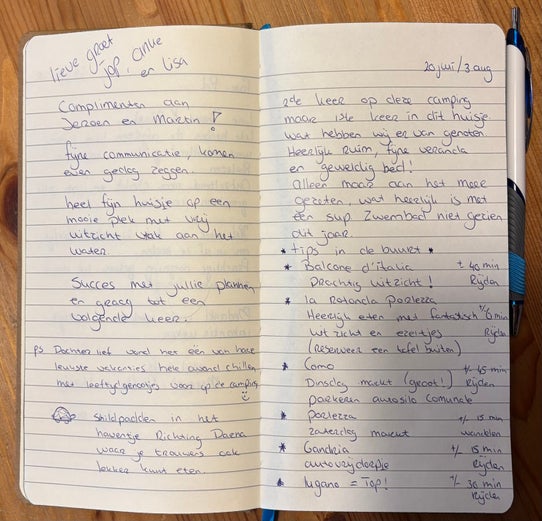 lieve groet
Jop, Anke
en Lisa
Complimenten aan
Jeroen en Martin!
fijne communicatie, komen
even gedag zeggen.
heel fijn huisje op een
mooie plek met vrij
uitzicht vlak aan het
water.
Succes met jullie plannen
en graag tot een
volgende keer.
ps Dochterlief vond het één van haar
leukste vakanties hele avond chillen
met leeftijdgenootjes voor op de camping
shildpadden in het
haventje Richting Darna
waar je trouwens ook
lekker kunt eten.
20 juli / 3 aug
2de keer op deze camping
maar 1ste keer in dit huisje
wat hebben wij er van genoten
Heerlijk ruim, fijne veranda
en geweldig bed!
Alleen maar aan het meer
gezeten, wat heerlijk is met
een sup zwembad niet gezien
dit jaar.
* tips in de buurt *
* Balcone d'italia ± 40 min
Prachtig uitzicht! Rijden
* la Rotonda Porlezza
Heerlijk eten met fantastisch min
uitzicht en ezeltjes Rijden
(Reserveer een tafel buiten)
* Como +/- 45 min
Dinsdag markt (groot!) Rijden
parkeren autosilo Comunale
* Porlezza +/- 15 min
zaterdag markt wandelen
* Gandria +/- 15 min
autovrij dorpje Rijden
* lugano = Top! +/- 30 min
Rijden